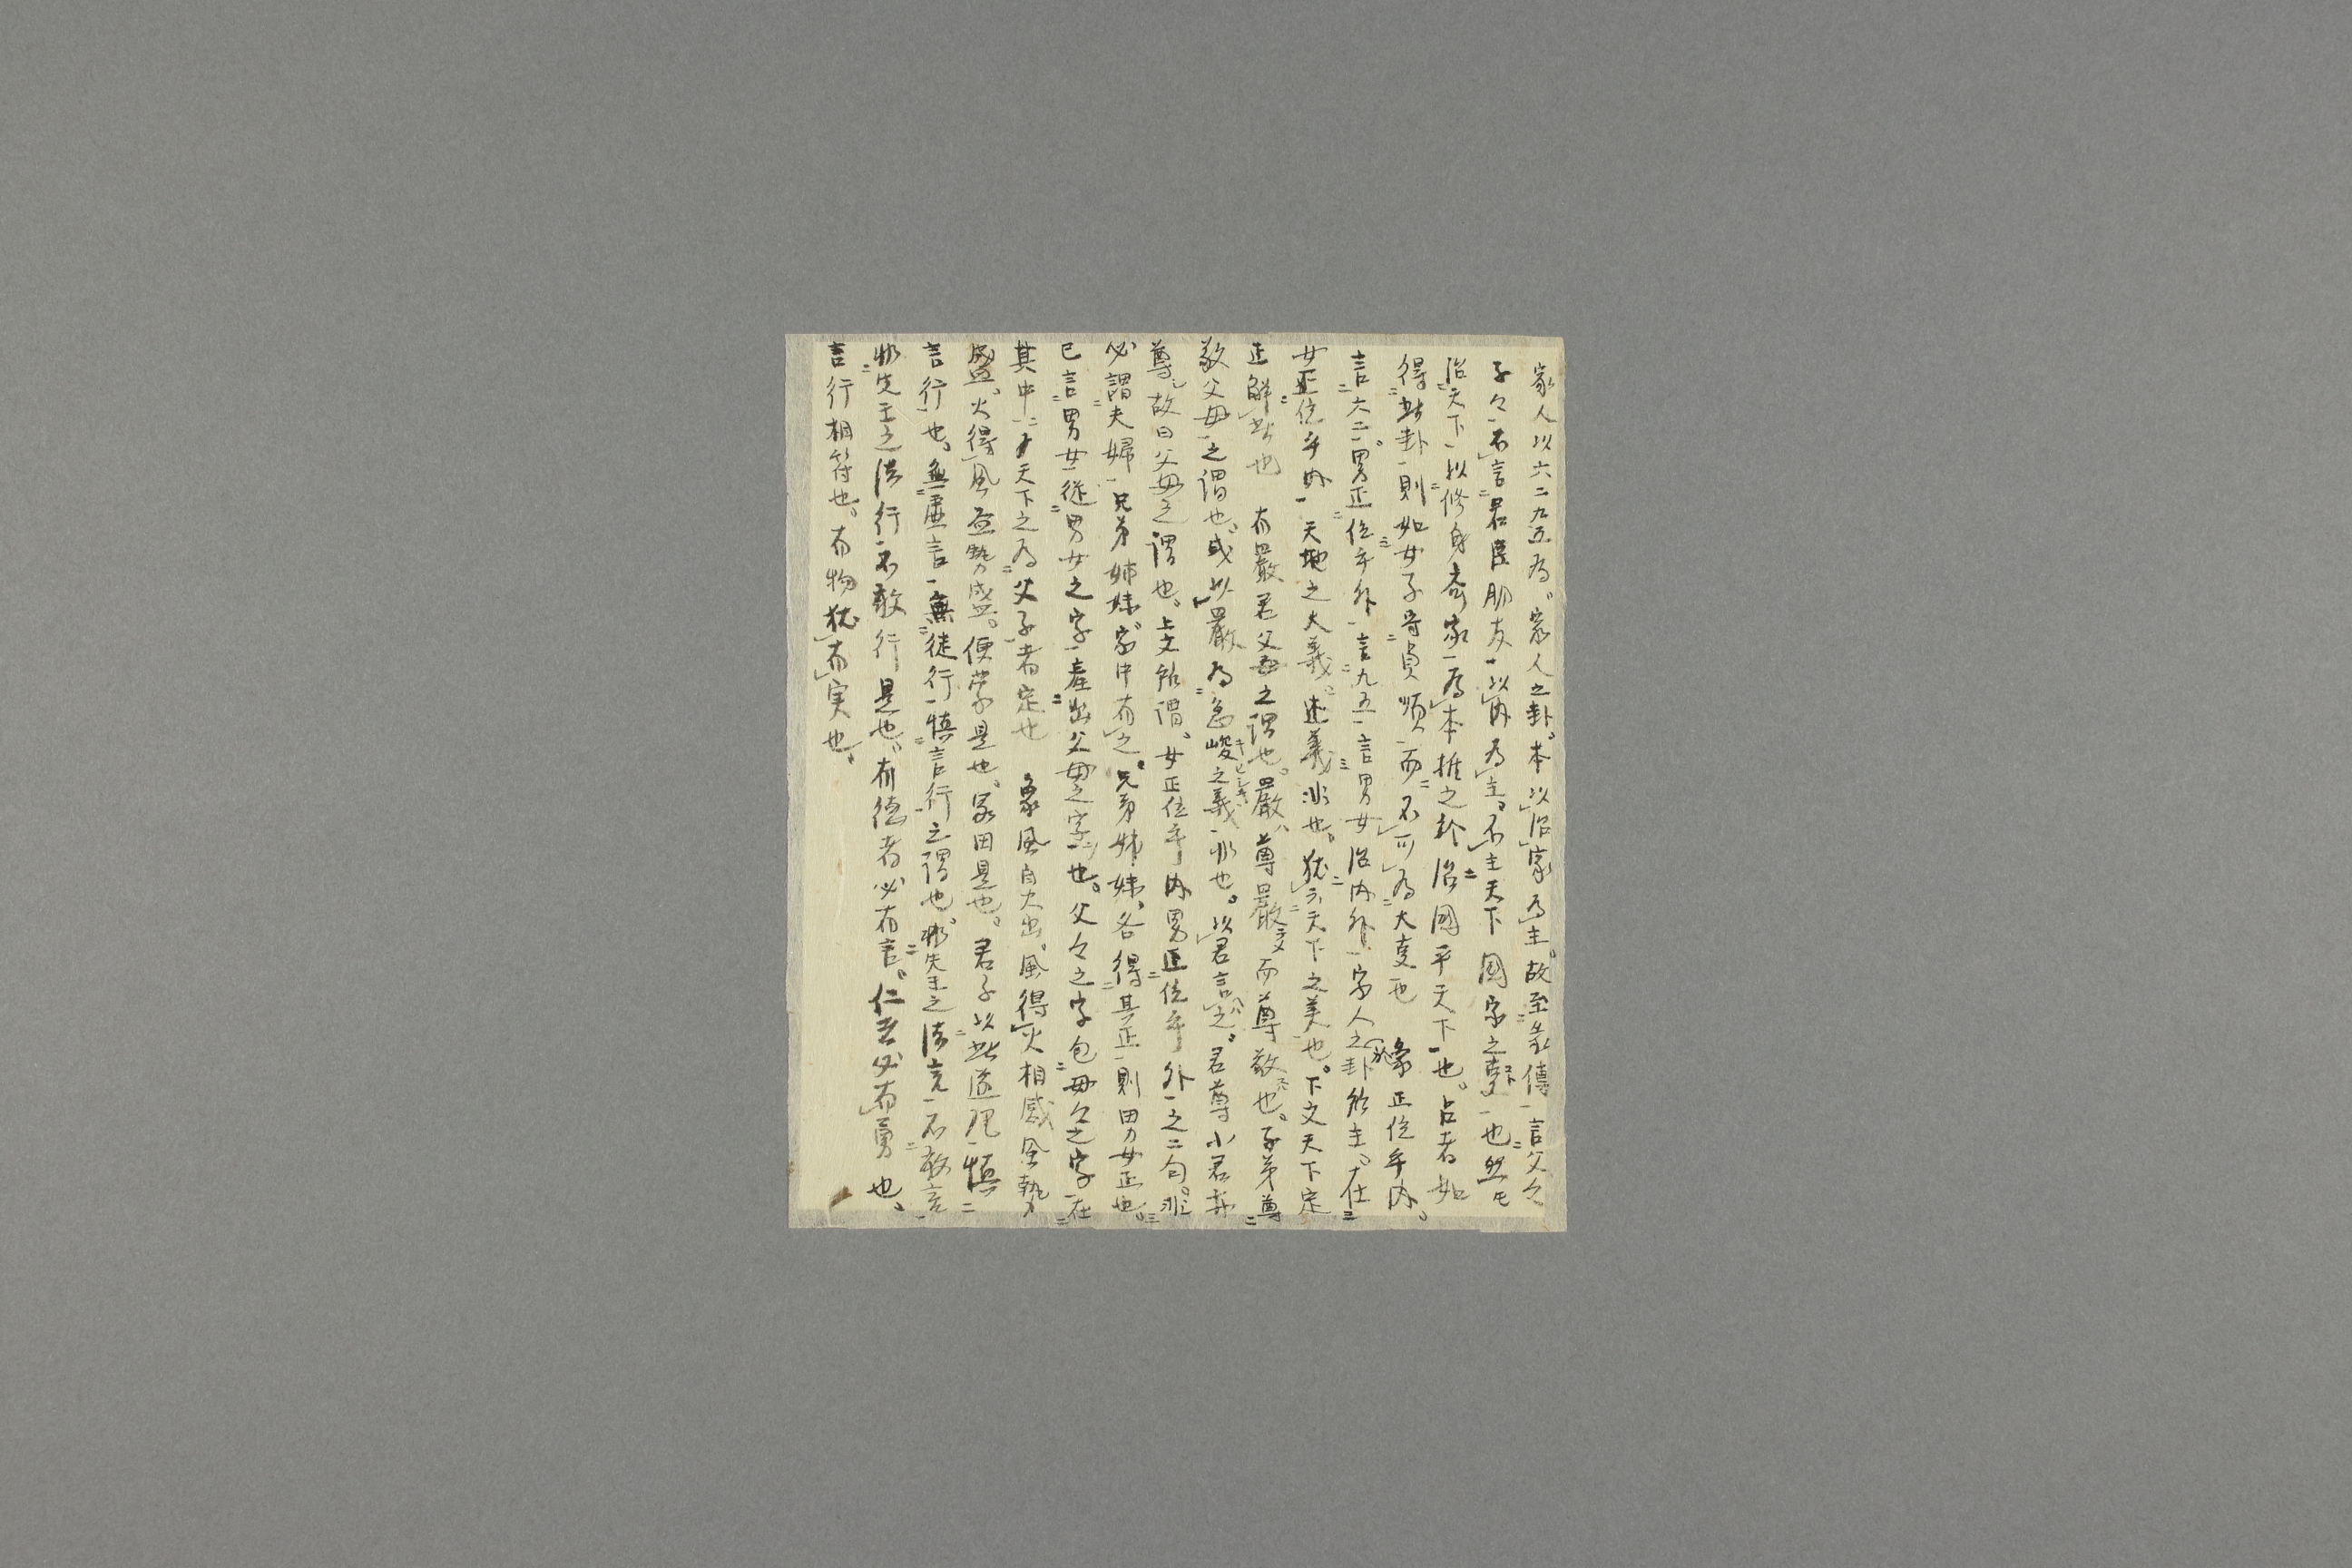 家人以六二九五為。家人之卦。本以治家為主。故至彖傳言父々
子々不言君臣朋友以内為主。不主天下國家之事也然乇
治天下以修身齊家為本推之於治國平天下也。占者如
得此卦則如女子寄貞順而不可為大支也　彖正位乎内。
言六二。男正位乎外言九五言男女治内外家人之卦於主。在
女正位乎内天地之大義。述義非也。猶云天下之美也。下文天下定
正解此也　有嚴君父母之謂也。嚴、尊嚴而尊敬也。子弟尊
敬父母之謂也。或以嚴為急峻之義非也。以君言之。君尊小君亦
尊。故曰父母之謂也。上文所謂、女正位乎内男正位乎外之二句。非
必謂夫婦兄弟姉妹家中有之。兄弟姉妹、各得其正則男女正也。
已言男女従男女之字産出父母之字也。父々之字包母々之字在
其中　天下之為父子者定也　象風自火出、風得火相感風勢
盛。火得風益勢盛。便学是也。家田是也。君子以此道理慎
言行也。無虚言無徒行慎言行之謂也。非先王之法言不敢言
非先王之法行不敢行是也。有德者必有言。仁者必有勇也。
言行相符也。有物猶有実也。